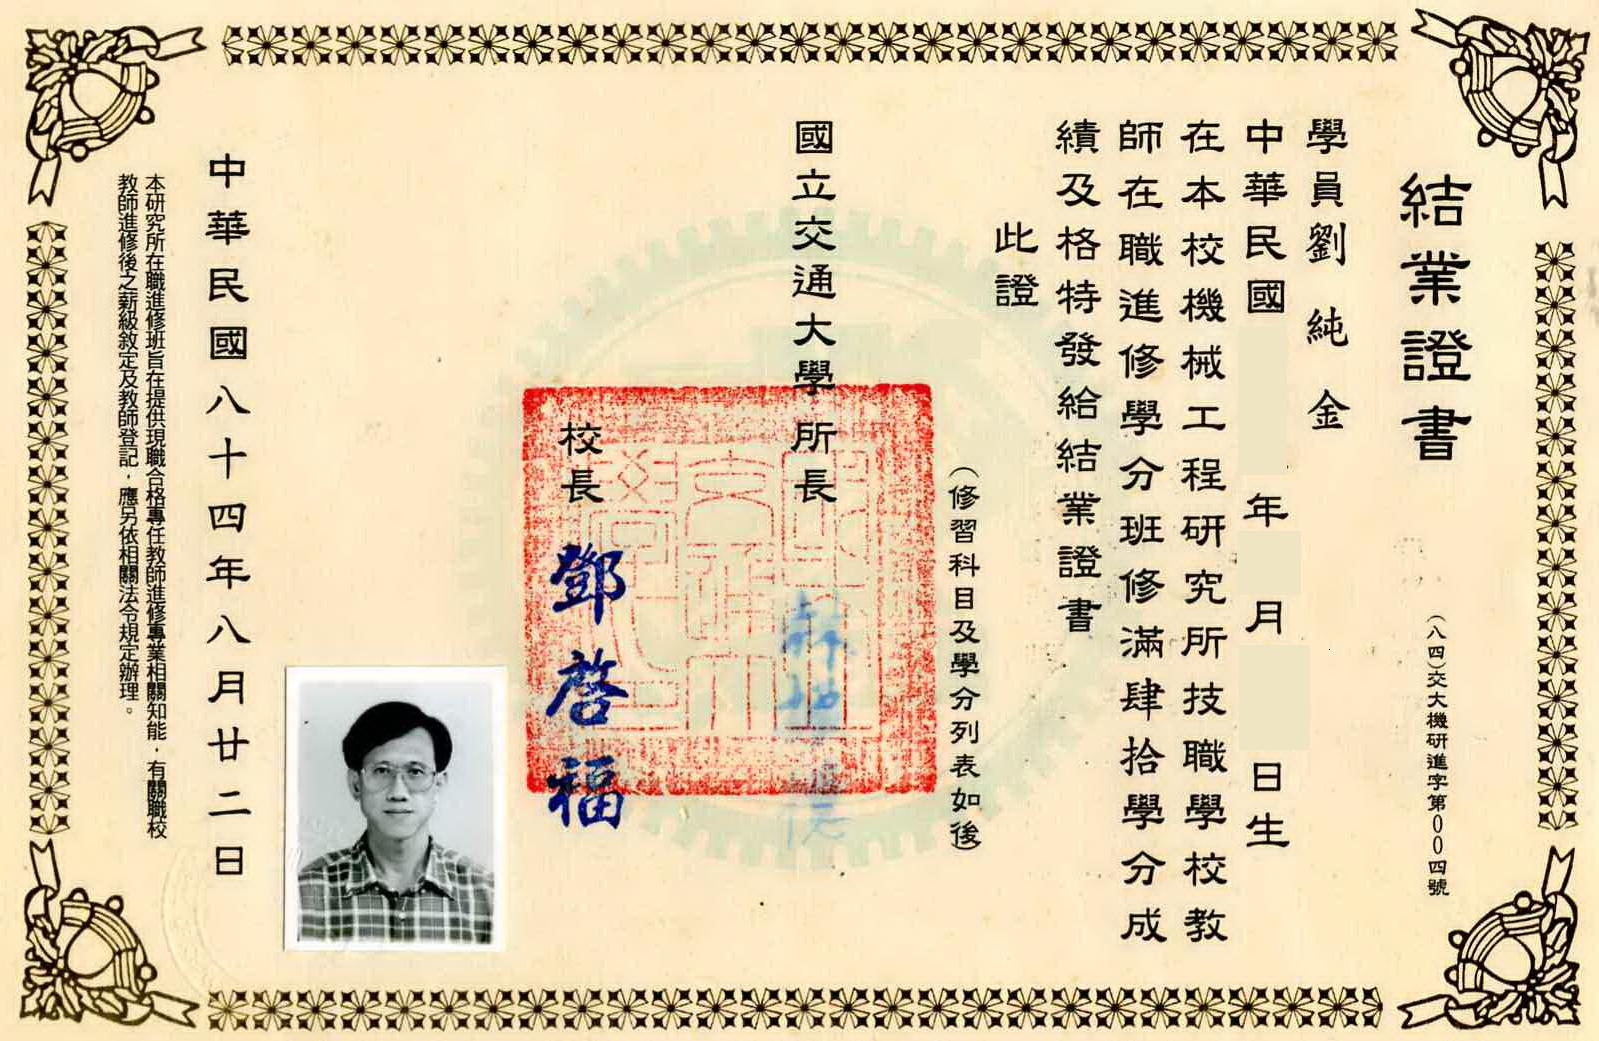 結業證書
（八四）交大機研進字第００四號
學員劉純金
中華民國 年 月 日生
在本校機械工程研究所技職學校教
師在職進修學分班修滿肆拾學分成
績及格特發給結業證書
此證
（修習科目及學分列表如後）
國立交通大學所長
校長 鄧啓福
中華民國八十四年八月廿二日
本研究所在職進修班旨在提供現職合格專任教師進修專業相關知能，有關職校
教師進修後之薪級敘定及教師登記，應另依相關法令規定辦理。